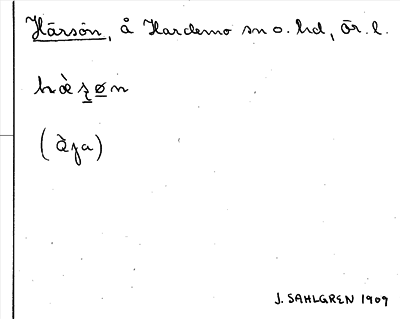 Härsön, å Hardemo sn o. hd, Ör. l.
hæ̀ʂøn
(àja)
J. SAHLGREN 1909